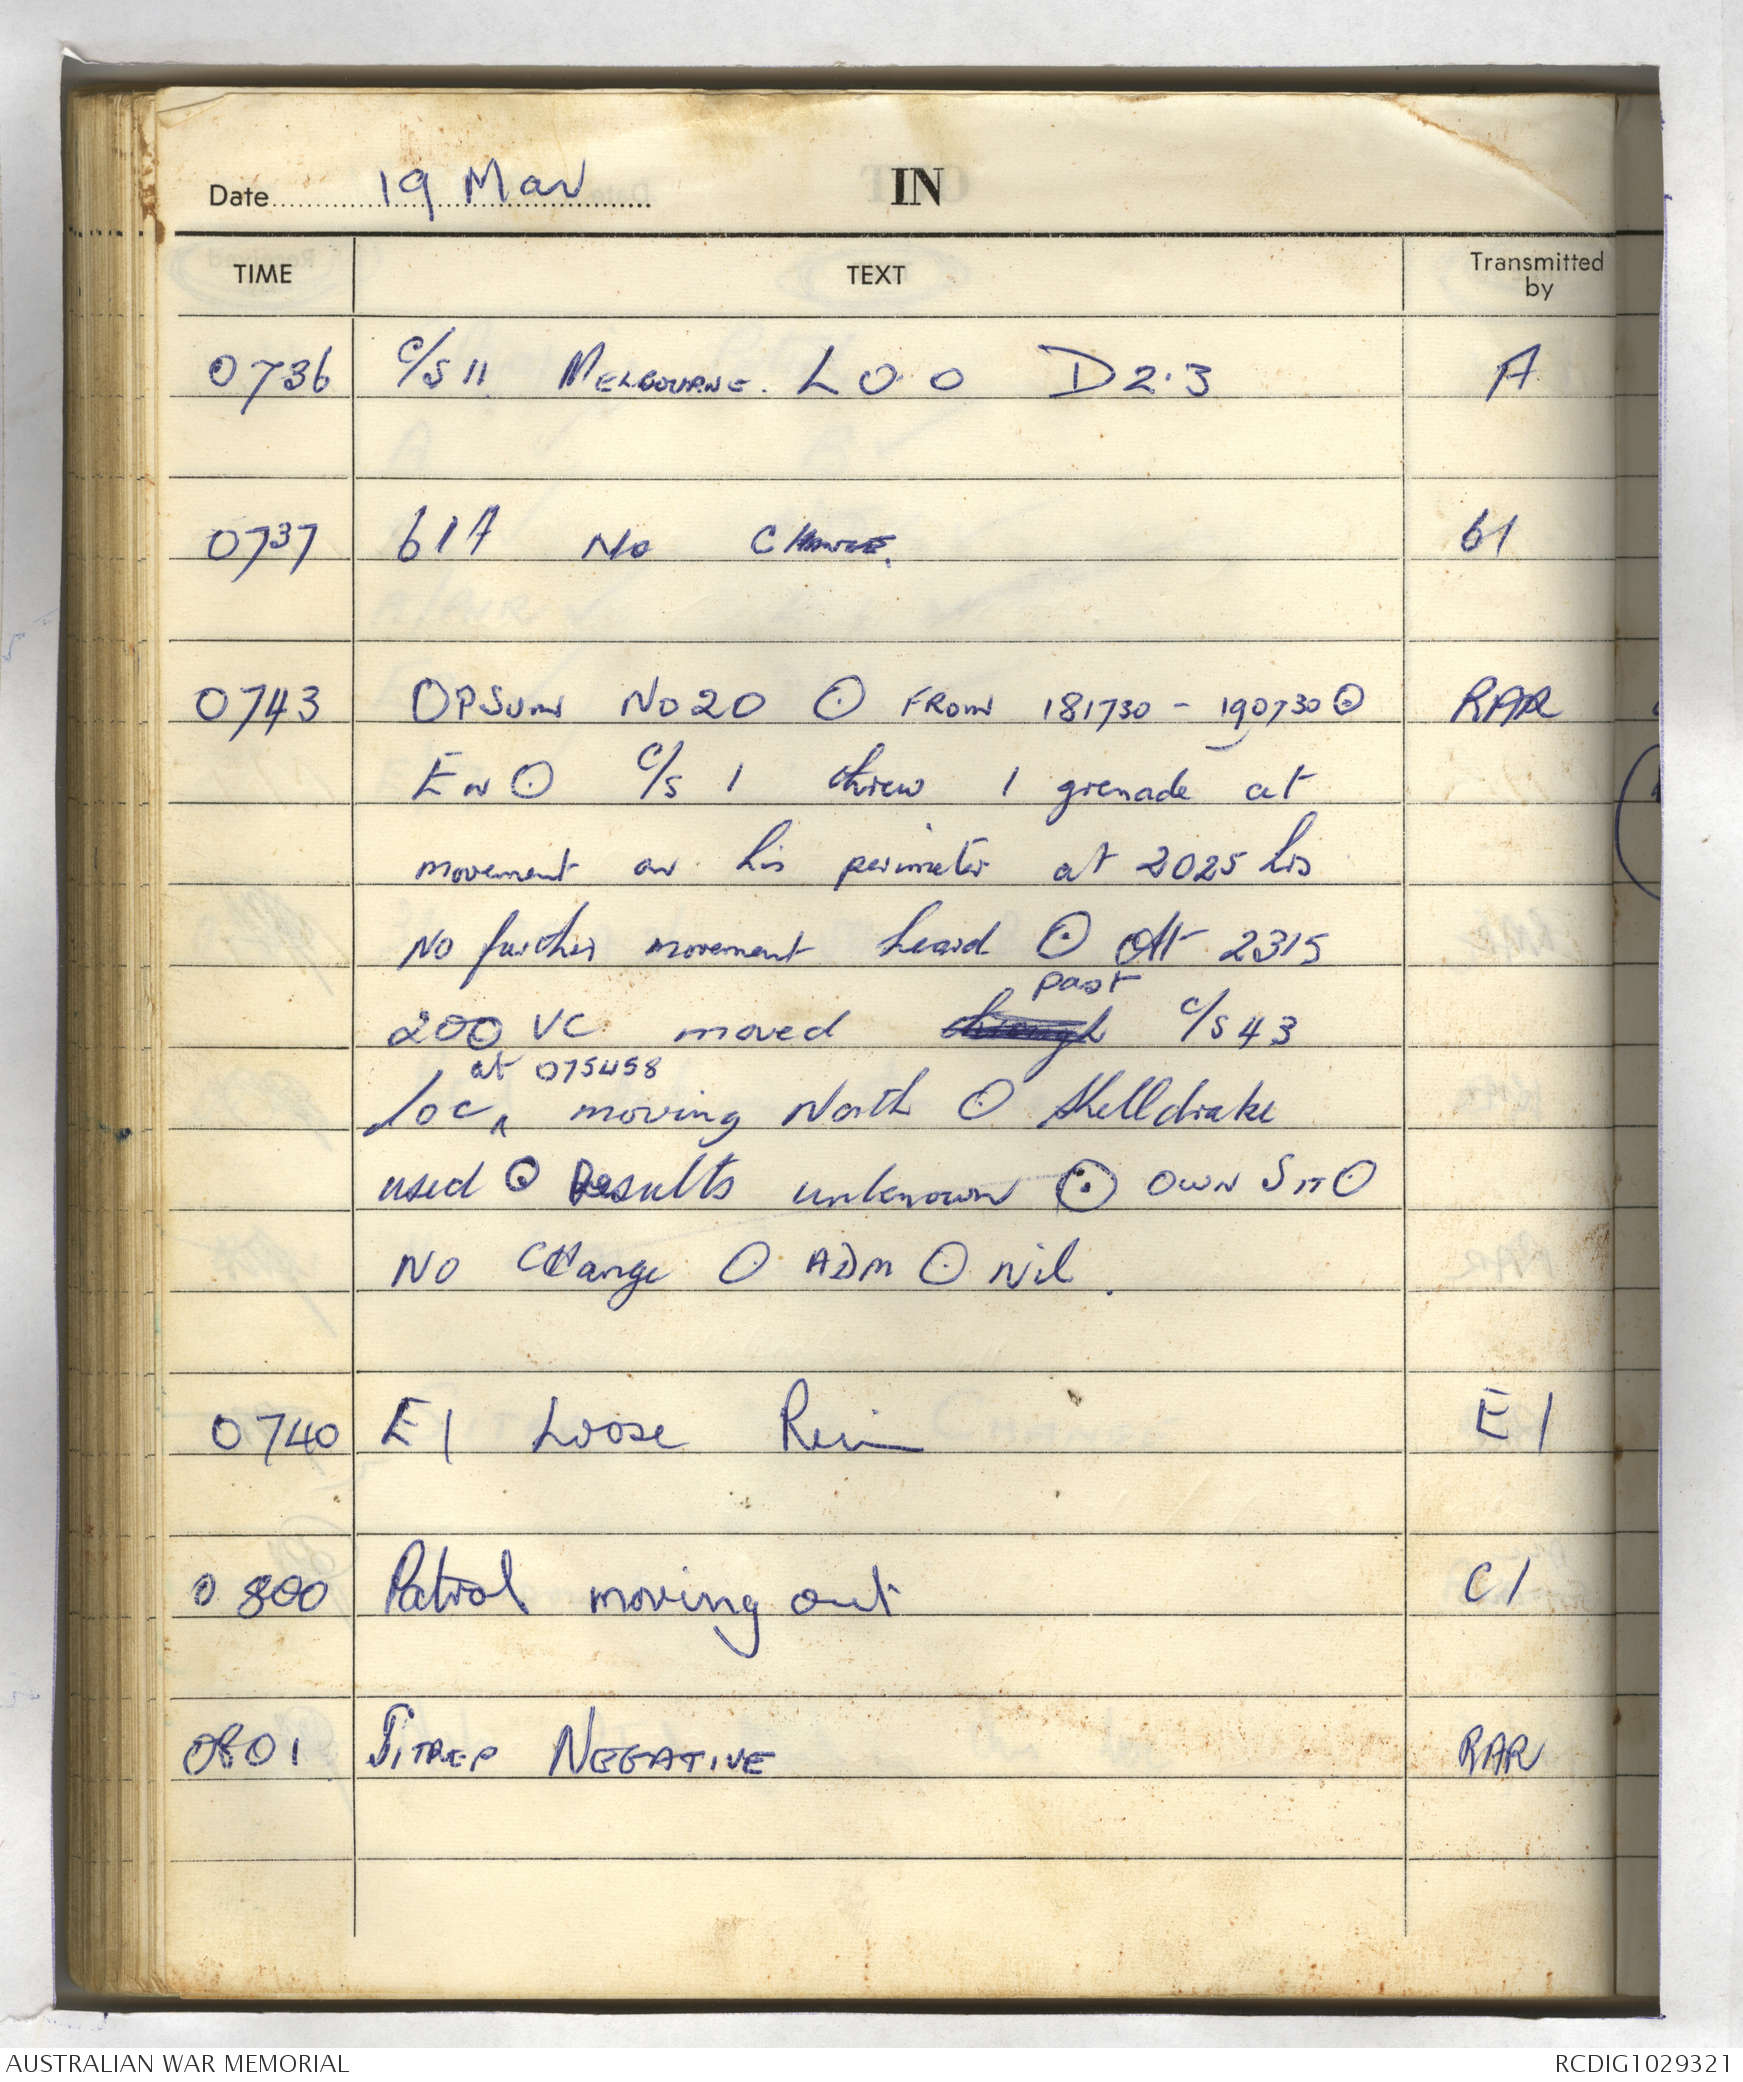 Date 19 Mar
IN
TIME TEXT Transmitted by
0736 C/S 11 MELBOURNE. L 0.0 D2.3 A
0737 61A NO CHANGE. 61
0743 OPSUM NO 20 ⊙ FROM 181730 - 190730 ⊙ RAR
EN ⊙ C/S 1 threw 1 grenade at
movement on his perimeter at 2025 hrs
No further movement heard ⊙ At 2315
past
200 VC moved through C/S 43
at 075458
loc ʌ moving North ⊙ Shelldrake
used ⊙ Results unknown ⊙ OWN SIT ⊙
NO Change ⊙ ADM ⊙ Nil.
0740 E1 Loose Rein E1
0800 Patrol moving out C1
0801 SITREP NEGATIVE RAR
AUSTRALIAN WAR MEMORIAL
RCDIG1029321